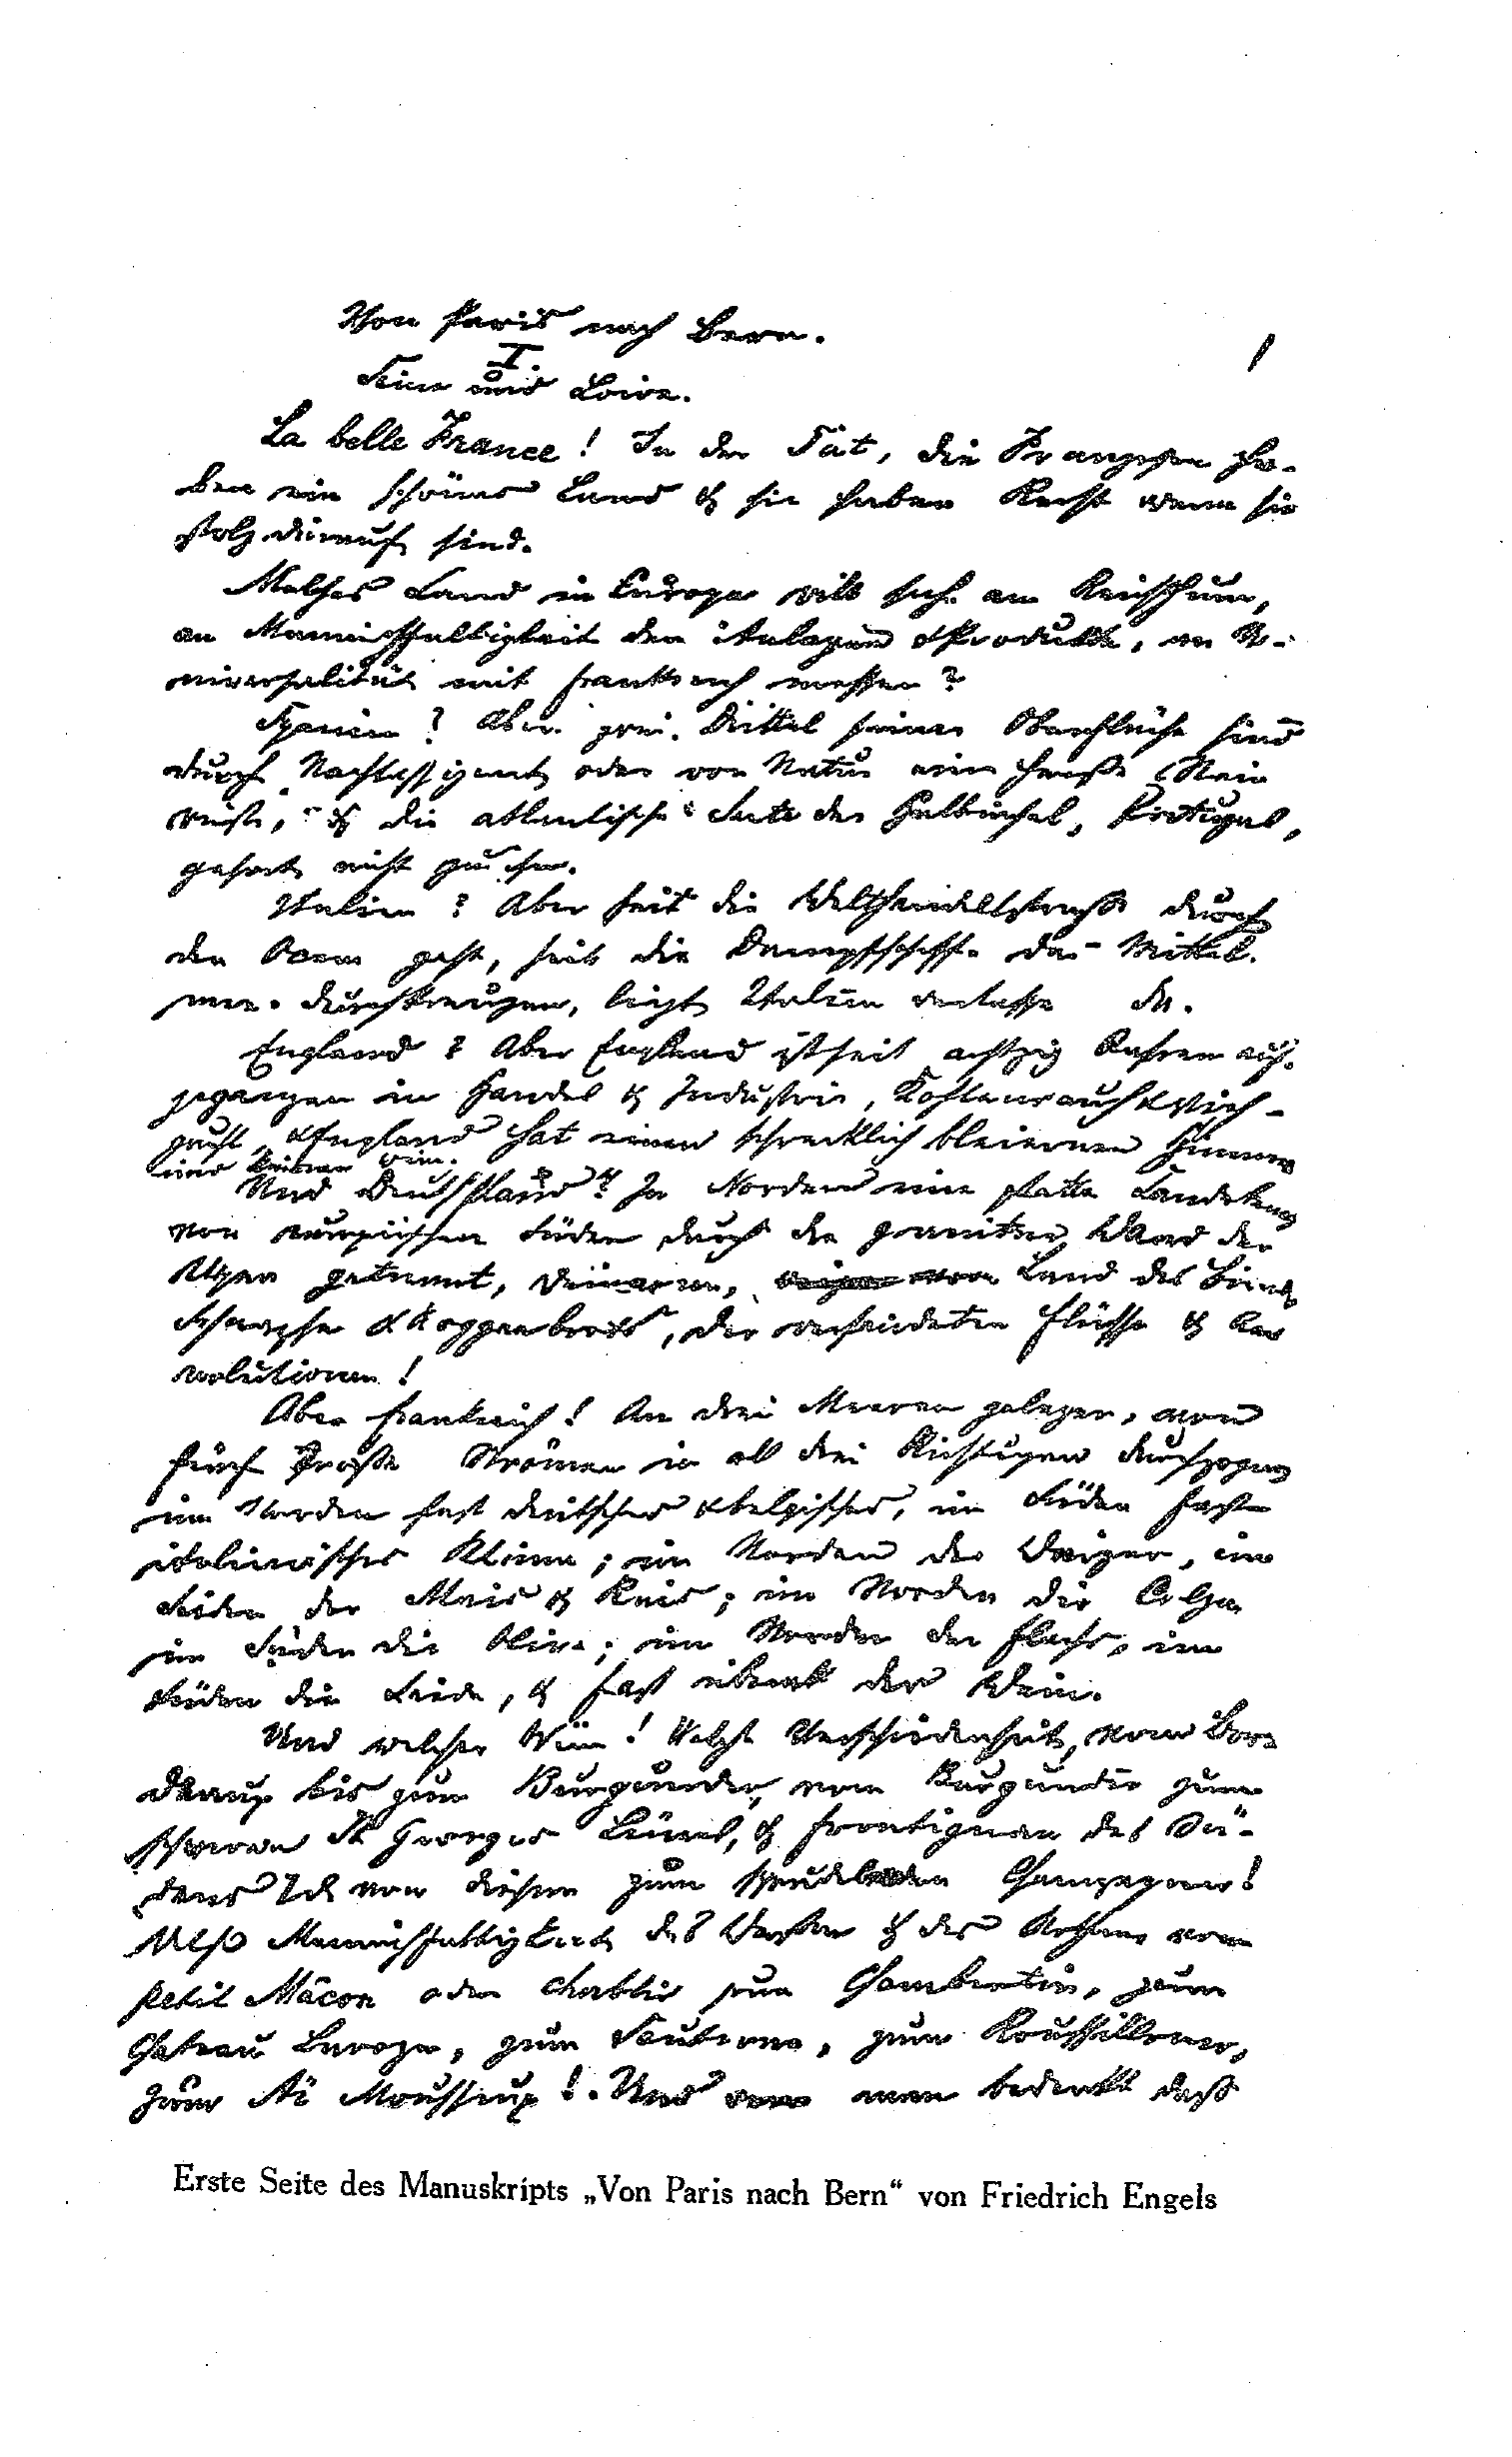 Von Paris nach Bern.
1
I.
Seine und Loire.
La belle France! In der Tat, die Franzosen ha-
ben ein schönes Land & sie haben Recht wenn sie
stolz darauf sind.
Welches Land in Europa will sich an Reichthum,
an Mannichfaltigkeit der Anlagen & Produkte, an U-
niversalität mit Frankreich messen?
Spanien? Aber zwei Drittel seiner Oberfläche sind
durch Nachlässigkeit oder von Natur eine heiße Stein
wüste, & die atlantische Seite der Halbinsel, Portugal,
gehört nicht zu ihm.
Italien? Aber seit die Welthandelsstraße durch
den Ocean geht, seit die Dampfschiffe das Mittel-
meer durchkreuzen, liegt Italien verlassen da.
England? Aber England ist seit achtzig Jahren auf-
gegangen in Handel & Industrie, Kohlenrauch & Vieh-
zucht, & England hat einen schrecklich bleiernen Himmel
und keinen Wein.
Und Deutschland? Im Norden eine platte Sandebene
vom europäischen Süden durch die granitne Wand der
Alpen getrennt, weinarm, Land des Biers
Schnapses & Roggenbrots, der versandeten Flüsse & Re-
volutionen!
Aber Frankreich! An drei Meeren gelegen, von
fünf großen Strömen in drei Richtungen durchzogen
im Norden fast deutsches & belgisches, im Süden fast
italienisches Klima; im Norden der Weizen, im
Süden der Mais & Reis; im Norden die Colza,
im Süden die Olive; im Norden der Flachs, im
Süden die Seide, & fast überall der Wein.
Und welcher Wein! Welche Verschiedenheit, vom Bor-
deaux bis zum Burgunder, vom Burgunder zum
schweren St Georges Lünel, & Frontignan des Sü-
dens & von diesem zum sprudelnden Champagner!
Welche Mannichfaltigkeit des Weißen & des Rothen vom
Petit Mâcon oder Chablis zum Chambertin, zum
Chateau Larose, zum Sauterne, zum Roussilloner,
zum Aï Mousseux! Und wenn man bedenkt daß
Erste Seite des Manuskripts „Von Paris nach Bern“ von Friedrich Engels